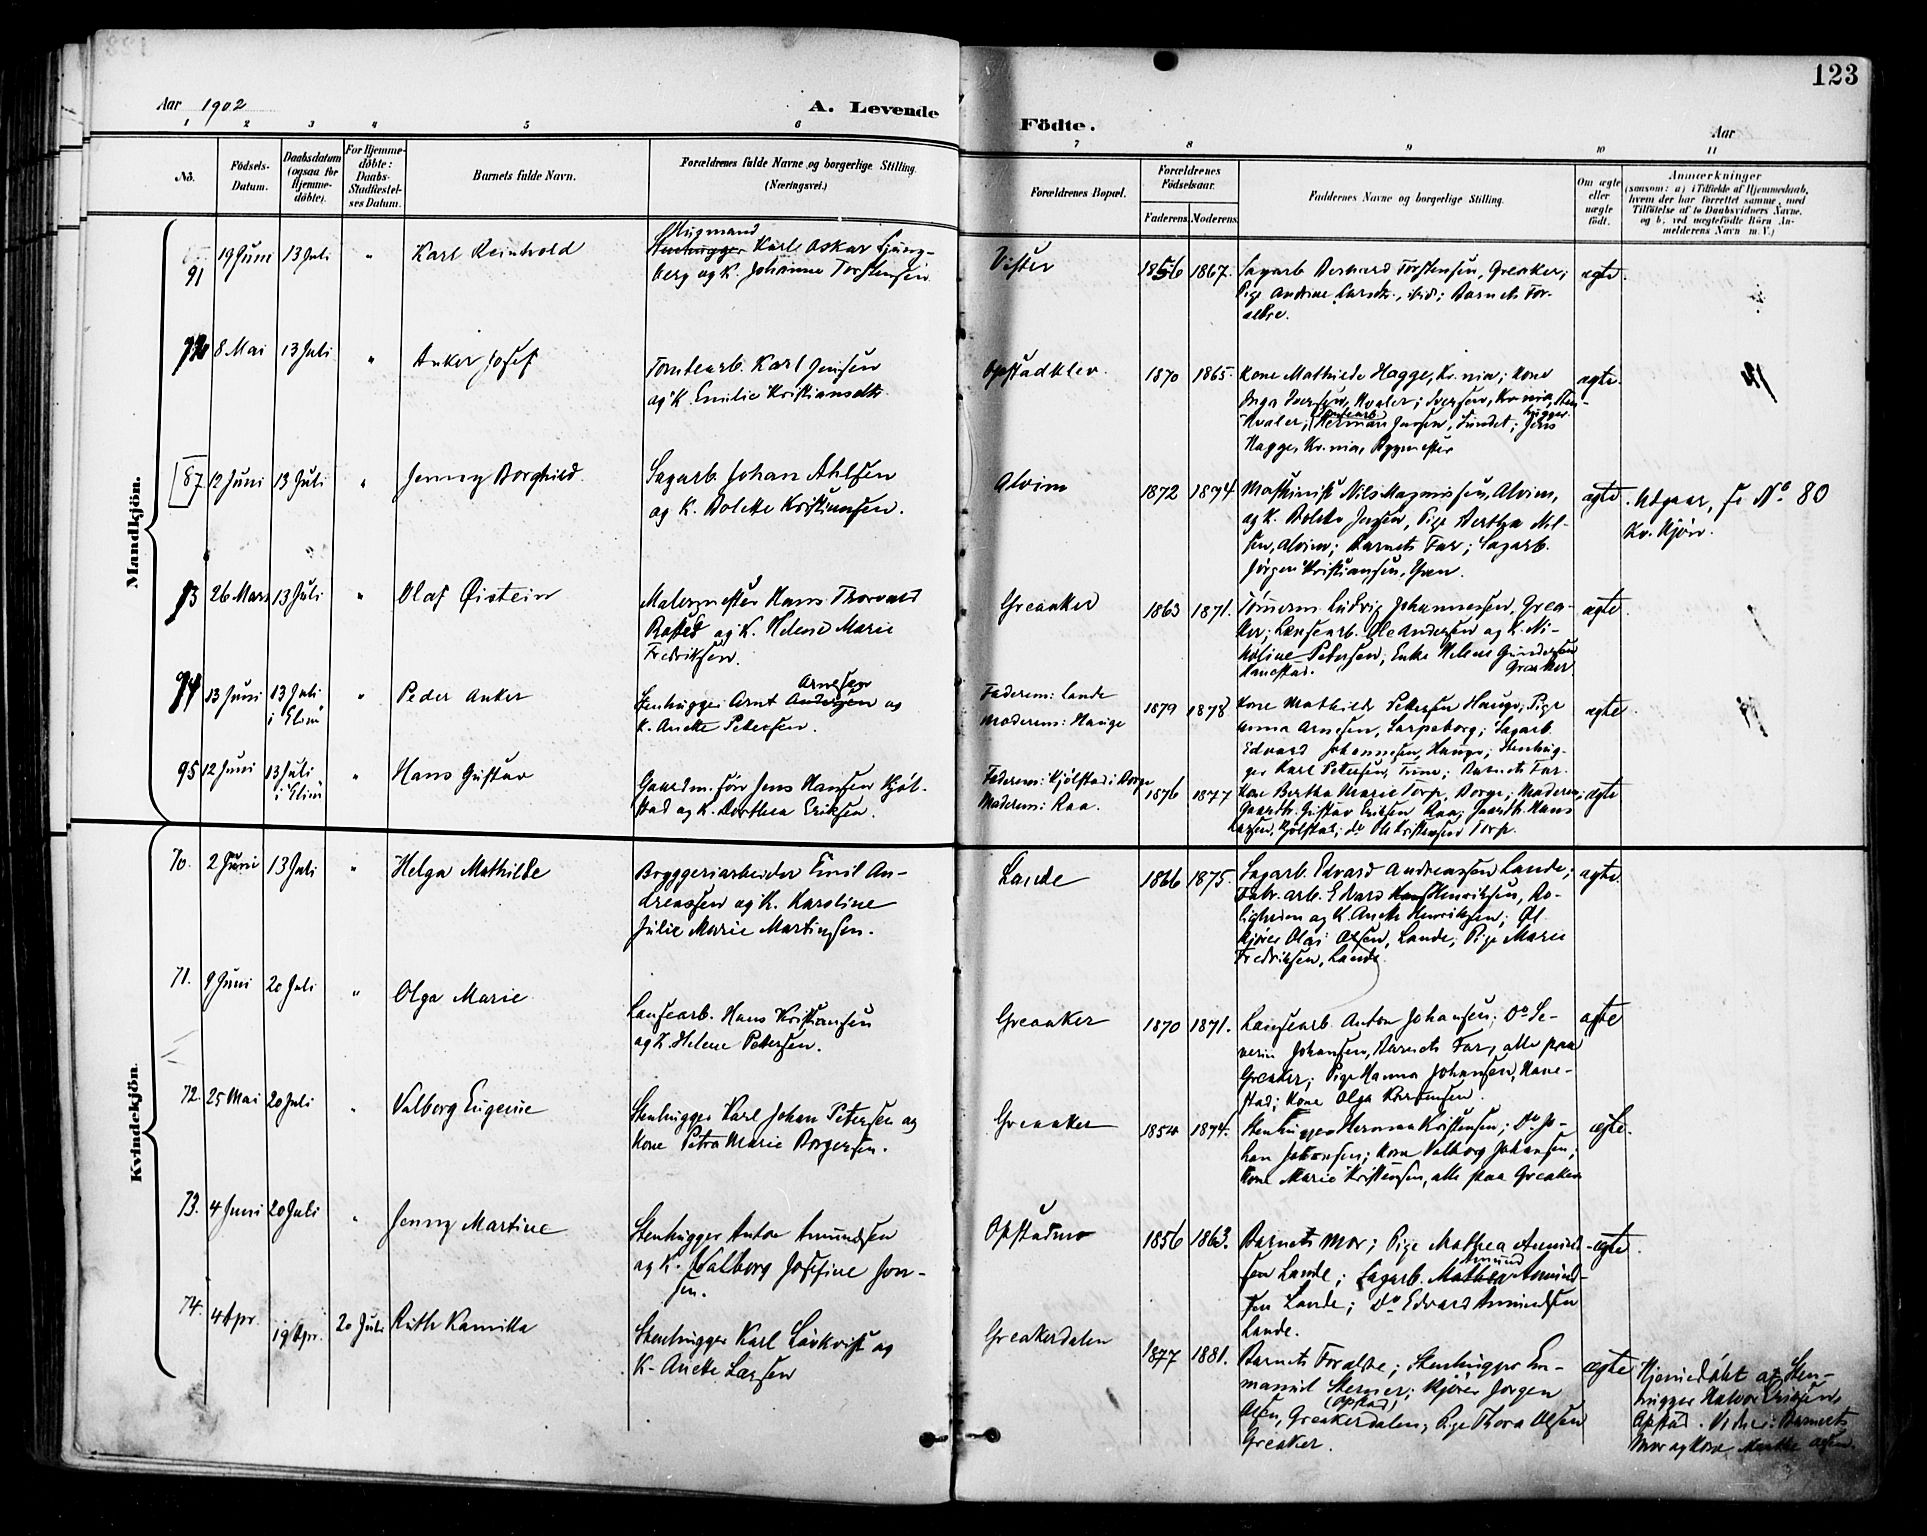 123
Aar 1902
A. Levende
Födte.
Aar
1 2 3 4 5 6 7 8 9 10 11
No.
Födsels-
Datum.
Daabsdatum
(ogsaa for
Hjemme-
döbte).
For Hjemme-
döbte:
Daabs-
Stadfæstel-
ses Datum.
Barnets fulde Navn.
Forældrenes fulde Navne og borgerlige Stilling
(Næringsvei.)
Forældrenes Bopæl.
Forældrenes
Födselsaar.
Faderens. Moderens.
Faddernes Navne og borgerlige Stilling.
Om ægte
eller
uægte
födt.
Anmærkninger
(saasom: a) i Tilfælde af Hjemmedaab,
hvem der har forrettet samme, med
Tilföielse af to Daabsvidners Navne,
og b) ved uægtefödte Börn An-
melderens Navn m. V.)
Mandkjön.
91 19 Juni 13 Juli " Karl Reinhold
Slugmand
Stenhugger Karl Oskar Ljung-
berg og K. Johanne Torstensen
Vister 1856 1867.
Sagarb. Bernhard Torstensen, Greaker;
Pige Andrine Larsdr., ibid; Barnets For-
ældre.
ægte.
92 8 Mai 13 Juli " Anker Josef
Tomtearb. Karl Jensen
og K. Emilie Kristiansdtr.
Opstadklev. 1870 1865.
Kone Mathilde Hagge, Kr.nia; Kone
Inga Iversen, Hvaler; Iversen, Kr.nia, Sten-
hugger
Hvaler; Herman Jensen, Sundet; Jens
Hagge, Kr.nia, Bygmester
ægte.
87 12 Juni 13 Juli " Jenny Borghild.
Sagarb. Johan Ahlsen
og K. Bolette Kristiansen.
Alvim 1872 1874.
Maskinist Nils Magnussen, Alvim,
og K. Bolette Jensen, Pige Bertha Nil-
sen, Alvim; Barnets Far; Sagarb.
Jörgen Kristiansen, Grøn.
ægte. Udgaar, se No. 80
Kv. Kjön.
93 26 Mars 13 Juli " Olaf Øistein
Malermester Hans Thorvald
Basted og K. Helene Marie
Fredriksen.
Greaaker 1863 1871.
Tømerm. Ludvig Johannessen, Grea-
ker; Lænsearb. Ole Andersen og K. Ni-
koline Petersen, Enke Helene Gundersen
Hanestad. Greaker.
ægte.
94 13 Juni 13 Juli "
i "Elim" Peder Anker
Arnesen
Stenhugger Arnt Andersen og
K. Anette Petersen.
Faderens: Lande
Moderens: Hauge
1879 1878
Kone Mathilde Petersen Hauge; Pige
Anna Arnesen, Sarpsborg; Sagarb.
Edvard Johannesen, Hauge; Stenhug-
ger Karl Petersen, Tune; Barnets Far.
ægte
95 12 Juni 13 Juli "
i "Elim" Hans Gustav
Gaardm. sön Jens Hansen Kjöl-
stad og K. Dorthea Eriksen.
Faderens: Kjölstad i Borge
Moderens: Raa.
1876 1877
Kone Bertha Marie Torp, Borge; Moderen;
Gaardbr. Gustav Eriksen Raa; Gaardbr. Hans
Larsen, Kjölstad; do Ole Kristiansen Torp.
ægte
Kvindekjön.
70. 2 Juni 13 Juli " Helga Mathilde
Bryggeriarbeider Emil An-
dreassen og K. Karoline
Julie Marie Martinsen.
Lande 1866 1875.
Sagarb. Edvard Andreassen Lande;
Fabr. arb. Edvard Henriksen, Ro-
ligheden og K. Anette Henriksen; Øl-
kjører Olaf Olsen, Lande; Pige Marie
Fredriksen, Lande.
ægte.
71. 9 Juni 20 Juli " Olga Marie
Lænsearb. Hans Kristiansen
og K. Helene Petersen.
Greaaker 1870 1871.
Lænsearb. Anton Johansen; Do Se-
verin Johansen, Barnets Far, alle paa
Greaker; Pige Hanna Johansen, Hane-
stad; Kone Olga Karlensen.
ægte
72. 25 Mai 20 Juli " Valborg Eugenie
Stenhugger Karl Johan Petersen og
Kone Petra Marie Borgersen.
Greaaker 1854 1874.
Stenhugger Herman Kristensen; Do Jo-
han Johansen; Kone Valborg Johansen,
Kone Marie Kristensen, alle paa Greaker
ægte.
73. 4 Juni 20 Juli " Jenny Martine
Stenhugger Anton Amundsen
og K. Valborg Josefine Jon-
sen.
Opstadmo 1856 1863.
Barnets Mor; Pige Mathea Amund-
sen Lande; Sagarb. Amund Amund-
sen Lande; Do Edvard Amundsen
Lande.
ægte.
74. 4 Apr. 19 Apr. 20 Juli Ruth Kamilla
Stenhugger Karl Lövkvist og
K. Anette Larsen
Greakerdalen
1877 1881.
Barnets Forældre; Stenhugger Em-
manuel Sterner; Kjører Jörgen
(Opstad)
Olsen, Greakerdalen; Pige Thora Olsen
Greaker.
ægte
Hjemmedöbt af Sten-
hugger Halvor Eriksen
Opstad. Vidner: Barnets
Mor og Kone Marthe Olsen.